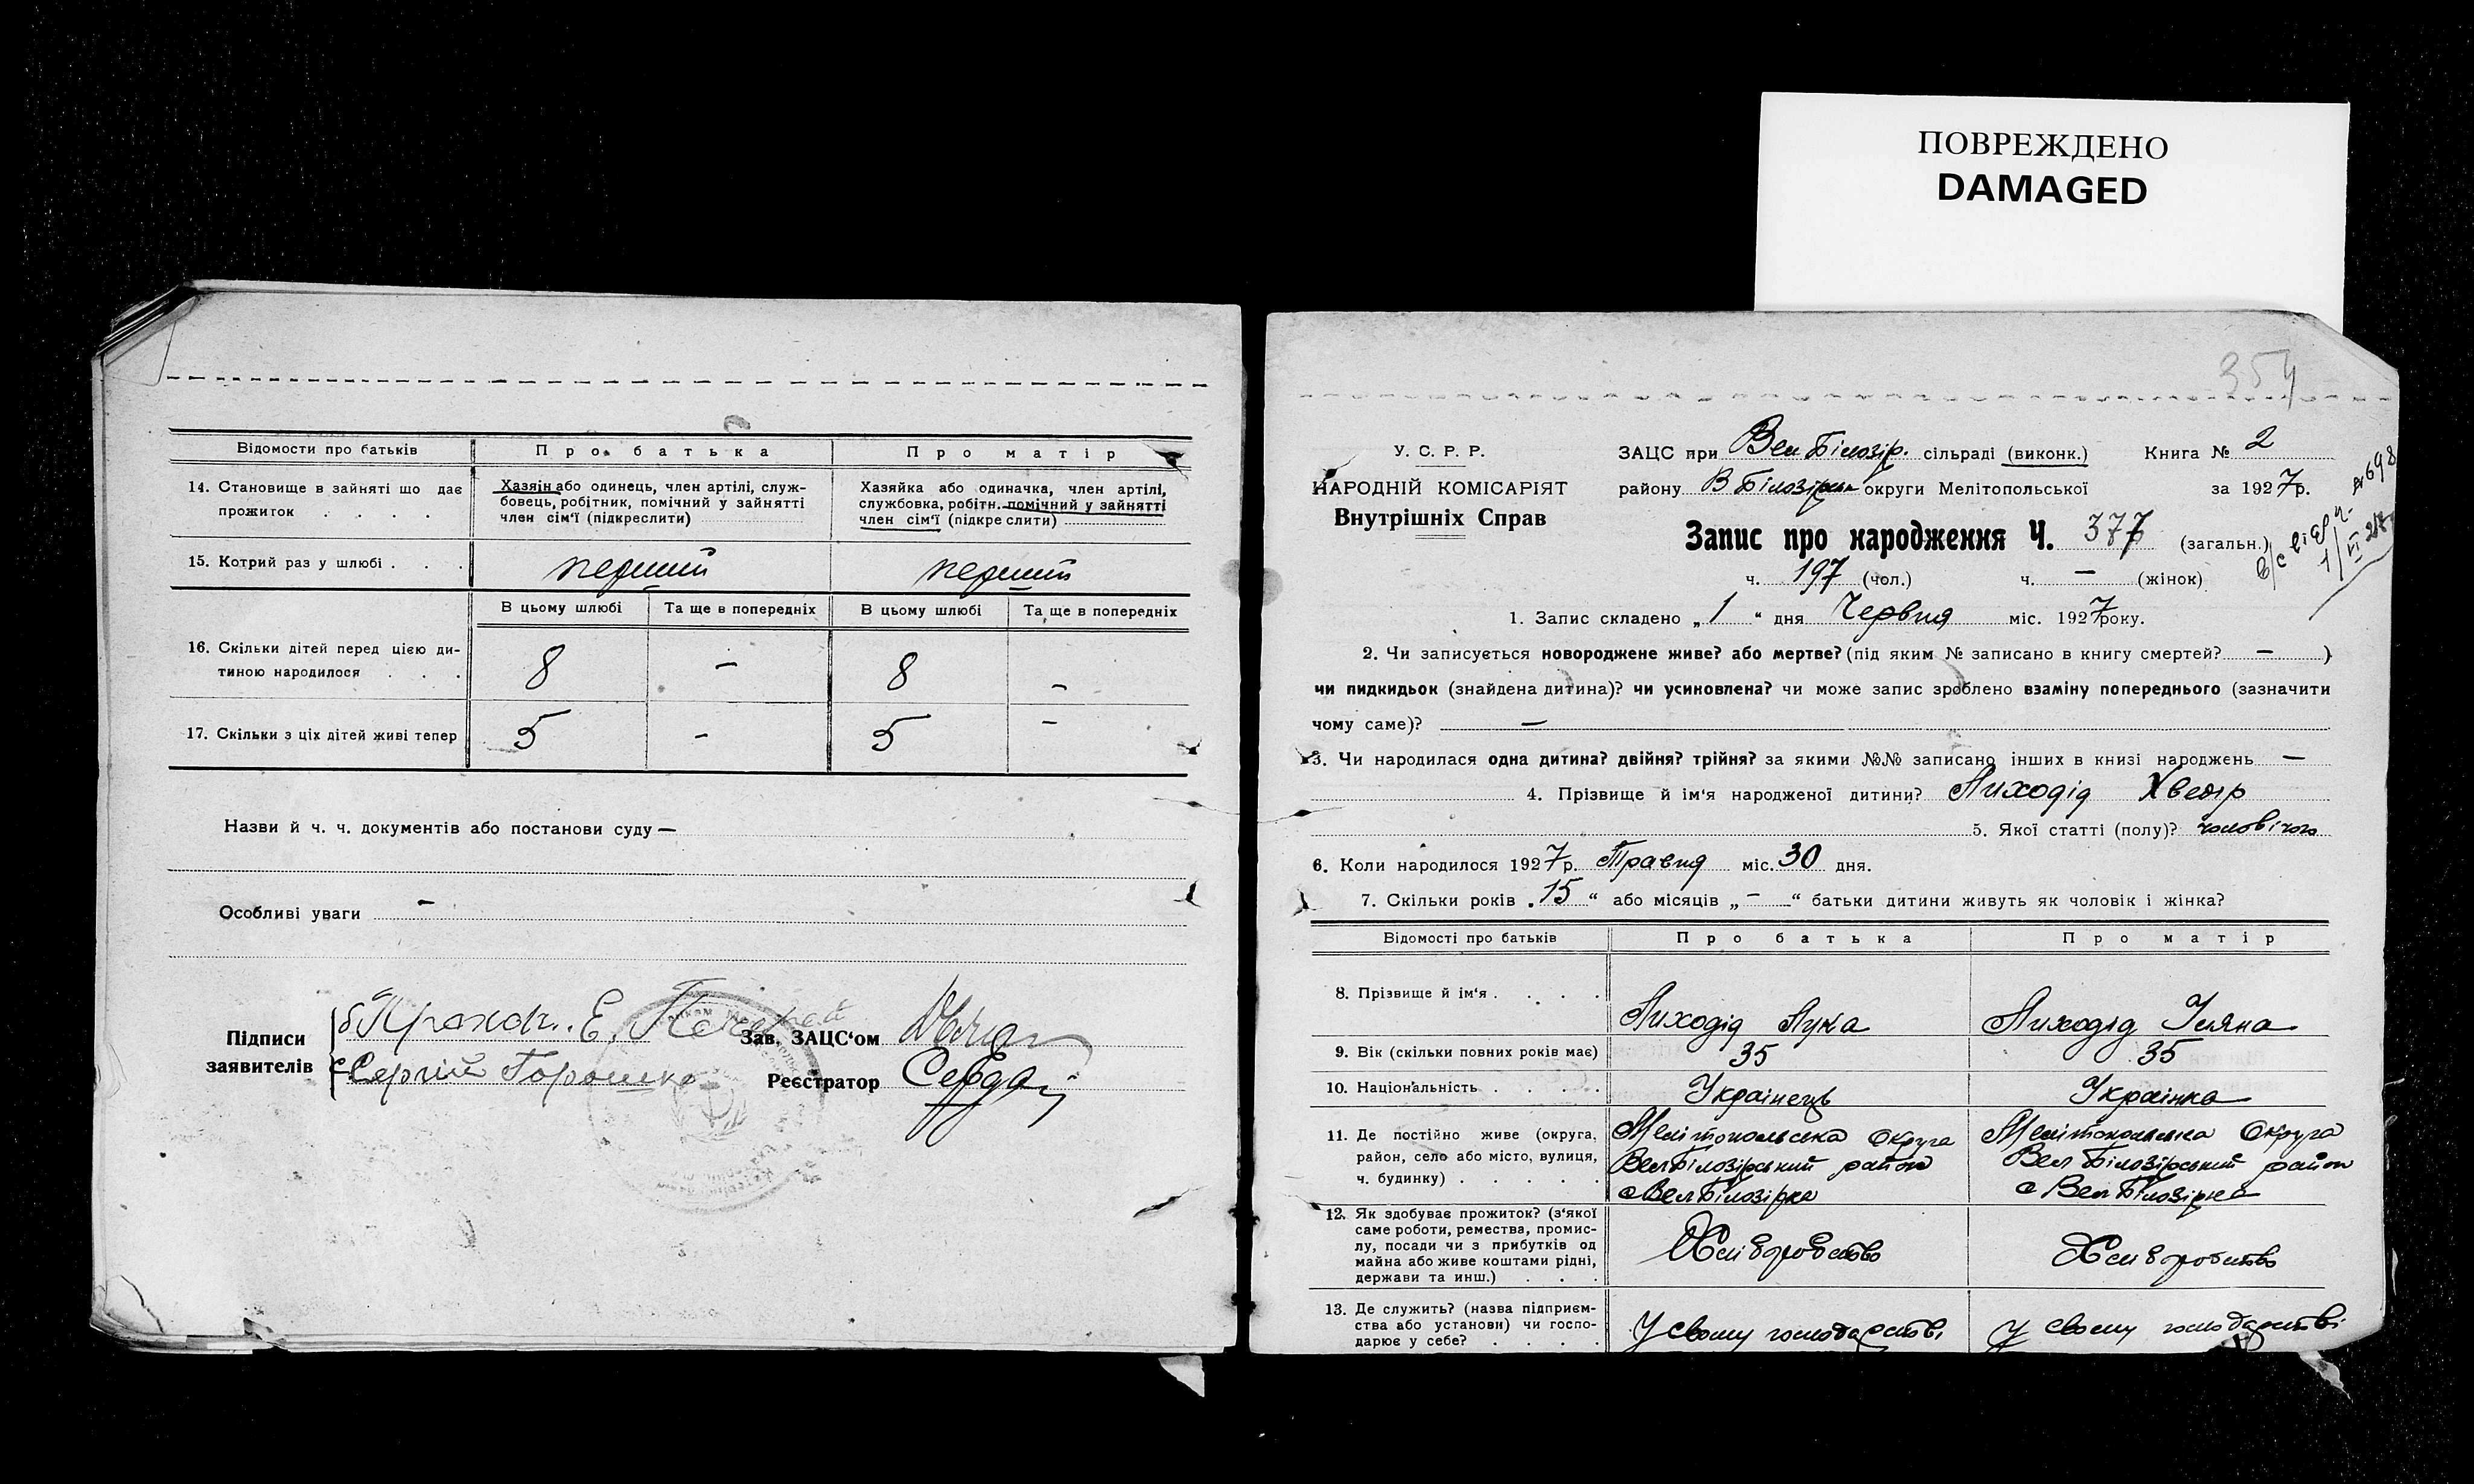 ПОВРЕЖДЕНО
DAMAGED
Відомости про батьків
Про батька
Про матір
14. Становище в зайняті що дає
прожиток . . . .
Хазяін або одинець, член артілі, служ-
бовець, робітник, помічний у зайнятті
член сім'ї (підкреслити)
Хазяйка або одиначка, член артілі,
службовка, робітн. помічний у зайнятті
член сім'ї (підкреслити)
15. Котрий раз у шлюбі . . .
перший
перший
В цьому шлюбі
Та ще в попередніх
В цьому шлюбі
Та ще в попередніх
16. Скільки дітей перед цією ди-
тиною народилося . . .
8 – 8 –
17. Скільки з ціх дітей живі тепер
5 - 5 –
Назви й ч. ч. документів або постанови суду —
Особливі уваги –
Підписи
заявителів
Зав. ЗАЦС'ом
Сергій Горошко
Реєстратор Сердай
354
У. С. Р. Р.
НАРОДНІЙ КОМІСАРІЯТ
Внутрішніх Справ
ЗАЦС при Вел Білозір. сільраді (виконк.) Книга № 2
району В Білозірськ округи Мелітопольської за 1927р.
Запис про народження Ч. 377 (загальн.)
ч. 197 (чол.) ч. — (жінок)
1. Запис складено „1“ дня Червня міс. 1927року.
2. Чи записується новороджене живе? або мертве? (під яким № записано в книгу смертей? — )
чи пидкидьок (знайдена дитина)? чи усиновлена? чи може запис зроблено взаміну попереднього (зазначити
чому саме)? —
3. Чи народилася одна дитина? двійня? трійня? за якими №№ записано інших в книзі народжень —
4. Прізвище й ім'я народженої дитини? Лиходід Хведір
5. Якої статті (полу)? чоловічого
6. Коли народилося 1927р. Травня міс. 30 дня.
7. Скільки років „15“ або місяців „–“ батьки дитини живуть як чоловік і жінка?
Відомості про батьків
Про батька
Про матір
8. Прізвище й ім'я . . . .
Лиходід Лука
Лиходід Уляна
9. Вік (скільки повних років має)
35
35
10. Національність . . . .
Українець
Українка
11. Де постійно живе (округа,
район, село або місто, вулиця,
ч. будинку) . . . . .
Мелітопольська Округа
Вел Білозірський район
с Вел Білозірка
Мелітопольська Округа
Вел Білозірський район
с Вел Білозірка
12. Як здобуває прожиток? (з'якої
саме роботи, ремества, промис-
лу, посади чи з прибутків од
майна або живе коштами рідні,
держави та инш.) . . .
Хліборобство
Хліборобство
13. Де служить? (назва підприєм-
ства або установи) чи госпо-
дарює у себе? . . . .
У свому господарстві
У свому господарстві